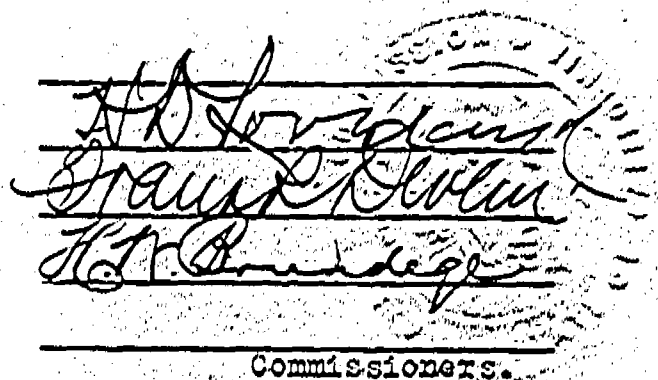 H D Loveland
Frank R Devlin
H. W. Brundage
Commissioners.